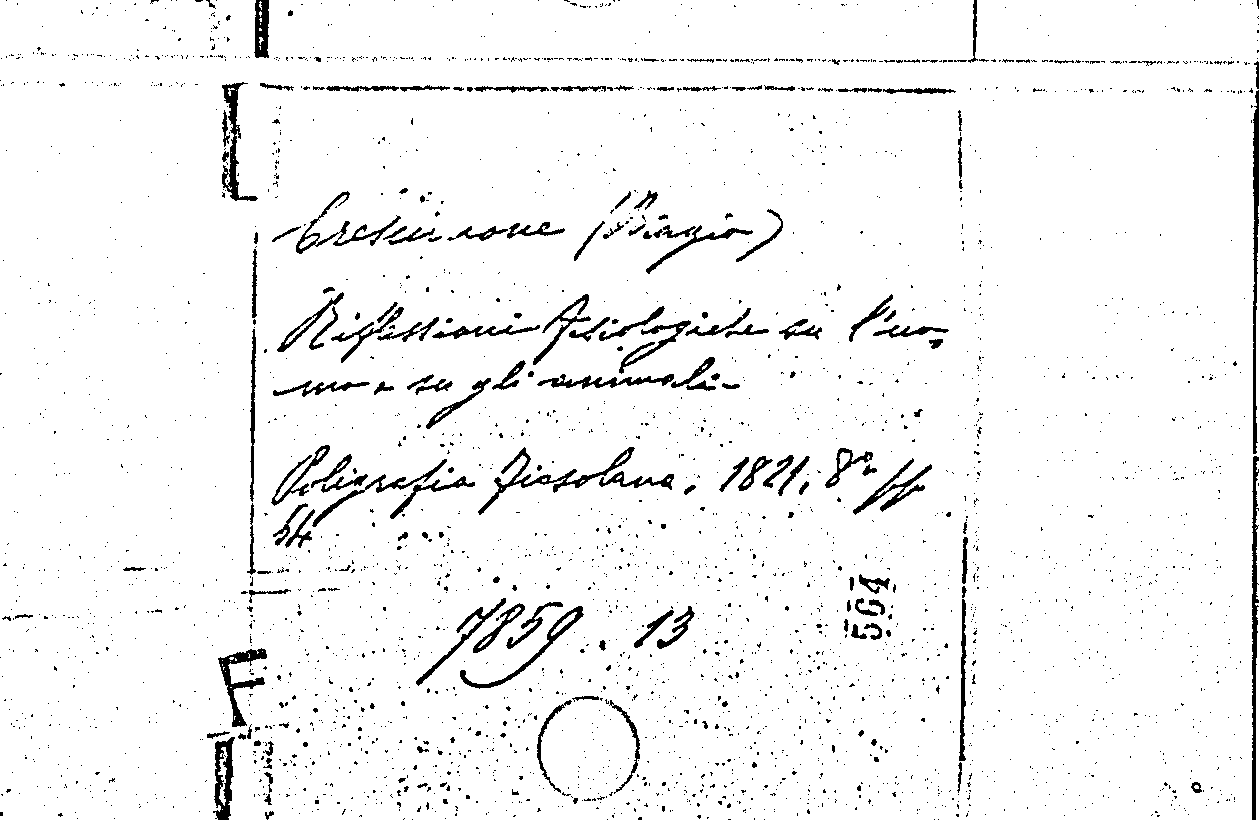 Crescimone (Biagio)
Riflessioni fisiologiche su l'uo-
mo e su gli animali-
Poligrafia Fiesolana, 1821, 8° pp
54
7859. 13
564